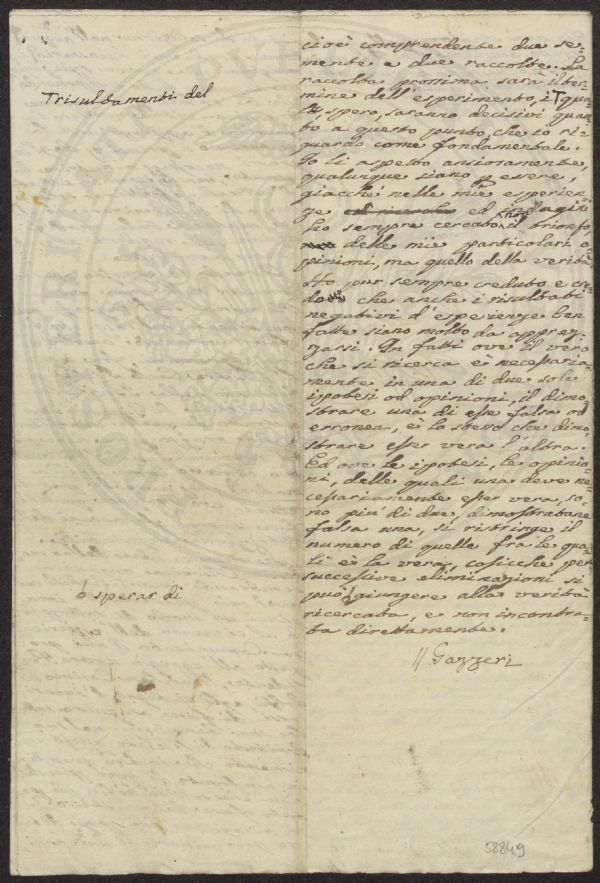 cioè comprendente due se-
mente e due raccolte. La
raccolta prossima sarà il ter-
mine dell'esperimento, i T qua-
li, spero, saranno decisivi quan-
to a questo punto, che io ri-
guardo come fondamentale.
Io li aspetto ansiosamente,
qualunque siano p essere,
giacchè nelle mie esperien-
ze ed indagini
ho sempre cercato, non il trionfo
delle mie particolari o-
pinioni, ma quello della verità.
Ho pur sempre creduto e cre-
do che anche i risultati
negativi d'esperienze ben
fatte siano molto da apprez-
zarsi. In fatti ove il vero
che si ricerca è necessaria-
mente in una di due sole
ipotesi od opinioni, il dimo-
strare una di esse falsa od
erronea, è lo stesso che dimo-
strare esser vera l'altra.
Ed ove le ipotesi, le opinio-
ni, delle quali una deve ne-
cessariamente esser vera, so-
no più di due, dimostratane
falsa una, si ristringe il
numero di quelle fra le qua-
li è la vera, cosicchè per
successive eliminazioni si
può giungere alla verità
ricercata, e non incontra-
ta direttamente.
Gazzeri
T risultamenti del
sperar di
58849